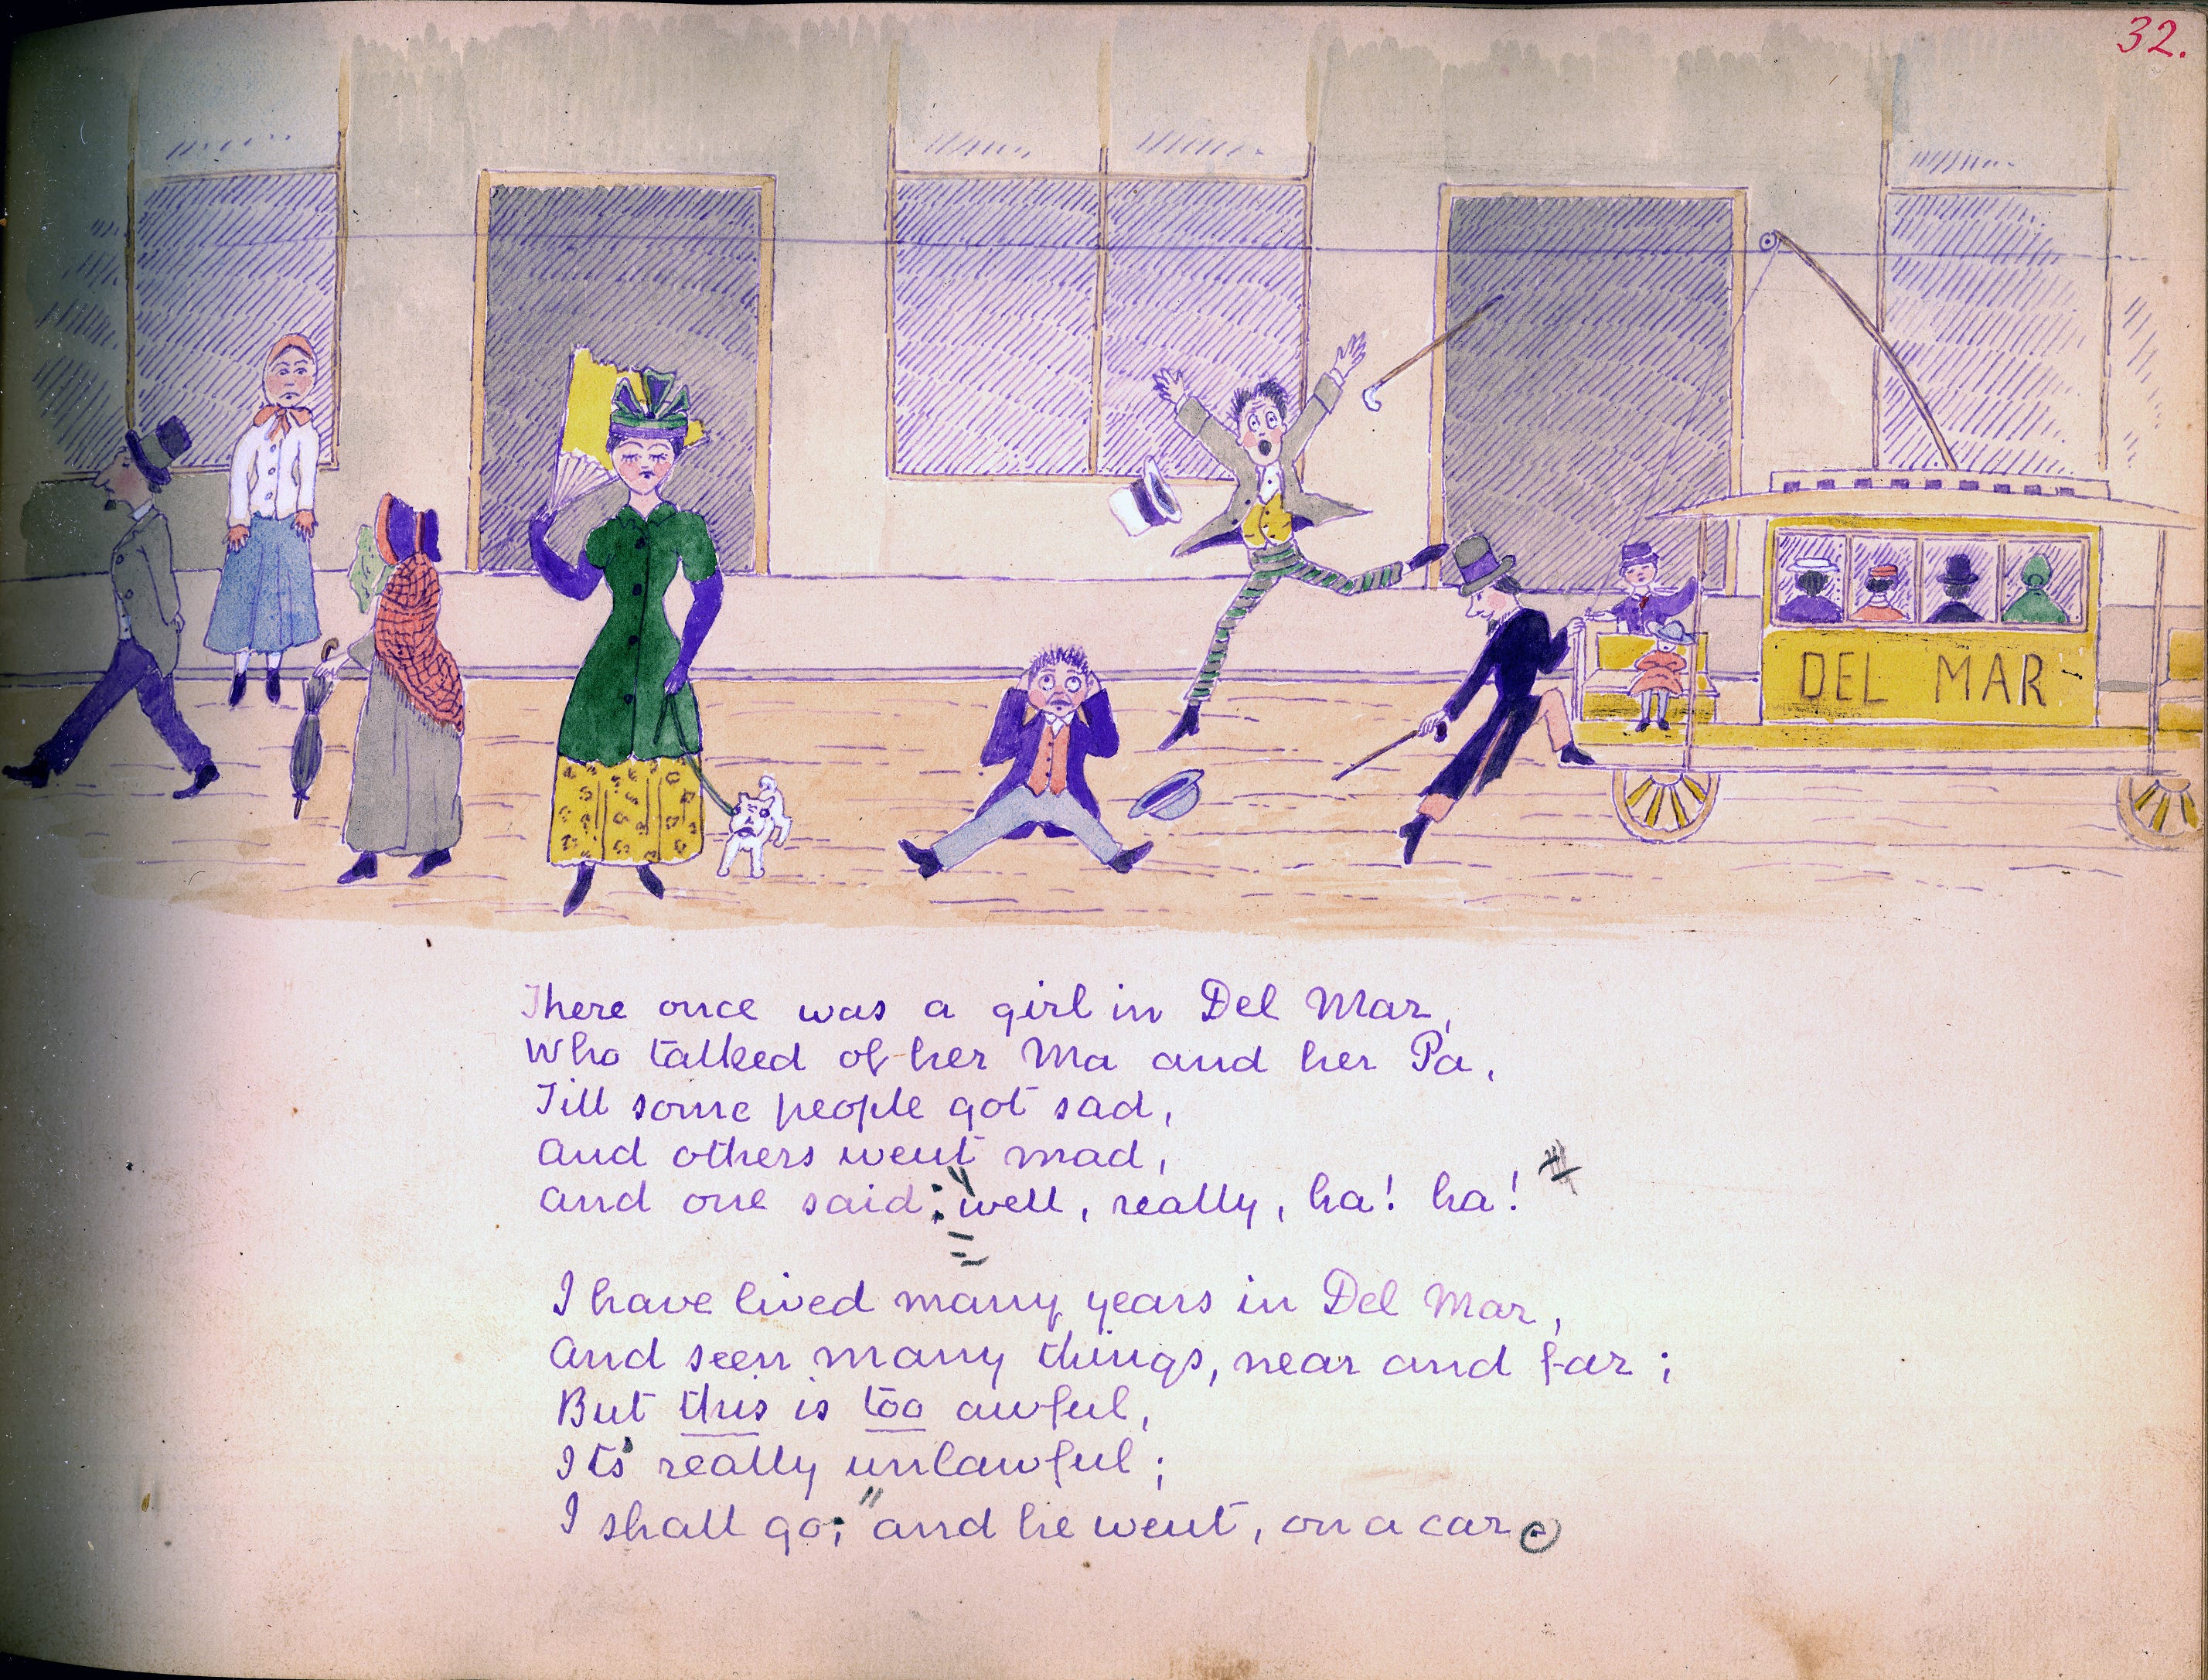 32.
DEL MAR
There once was a girl in Del Mar,
Who talked of her Ma and her Pa,
Till some people got sad,
And others went mad,
And one said: "well, really, ha! ha!
I have lived many years in Del Mar,
And seen many things, near and far;
But this is too awful,
It's really unlawful;
I shall go;" and he went, on a car.